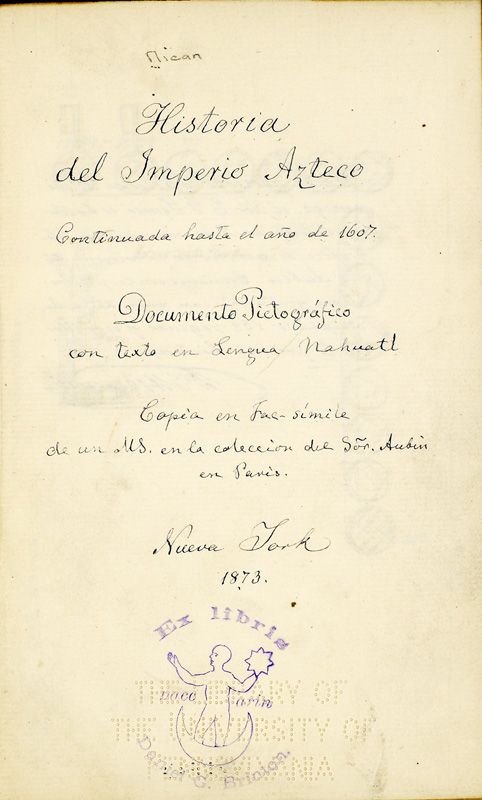 Mican
Historia
del Imperio Azteco
Continuada hasta el año de 1607.
Documento Pictográfico
con texto en Lengua Nahuatl
Copia en Fac-símile
de un MS. en la coleccion del Sõr. Aubin
en Paris.
Nueva York
1873.
Ex libris
THE LIBRARY OF
THE UNIVERSITY OF
Daniel G. Brinton.